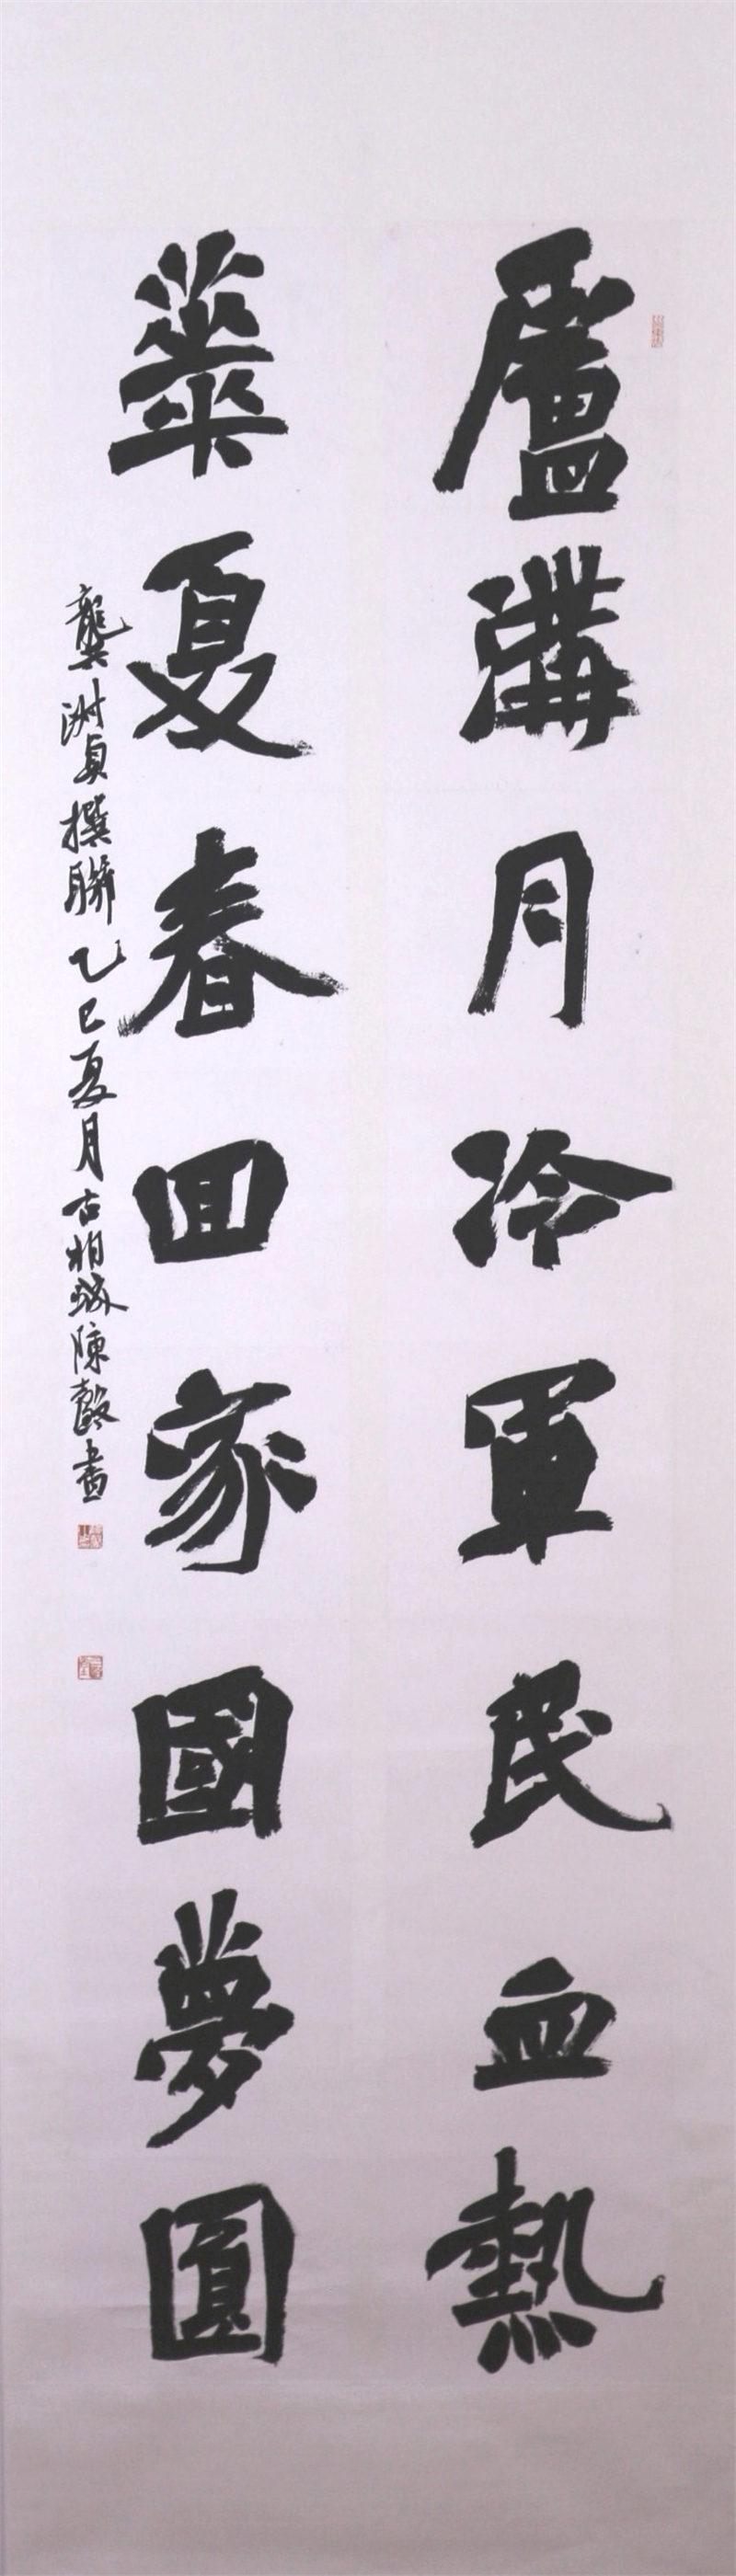 盧溝月冷軍民血熱
華夏春回家國夢圓
龔洲貞撰聯乙巳夏月古柏 陳 書